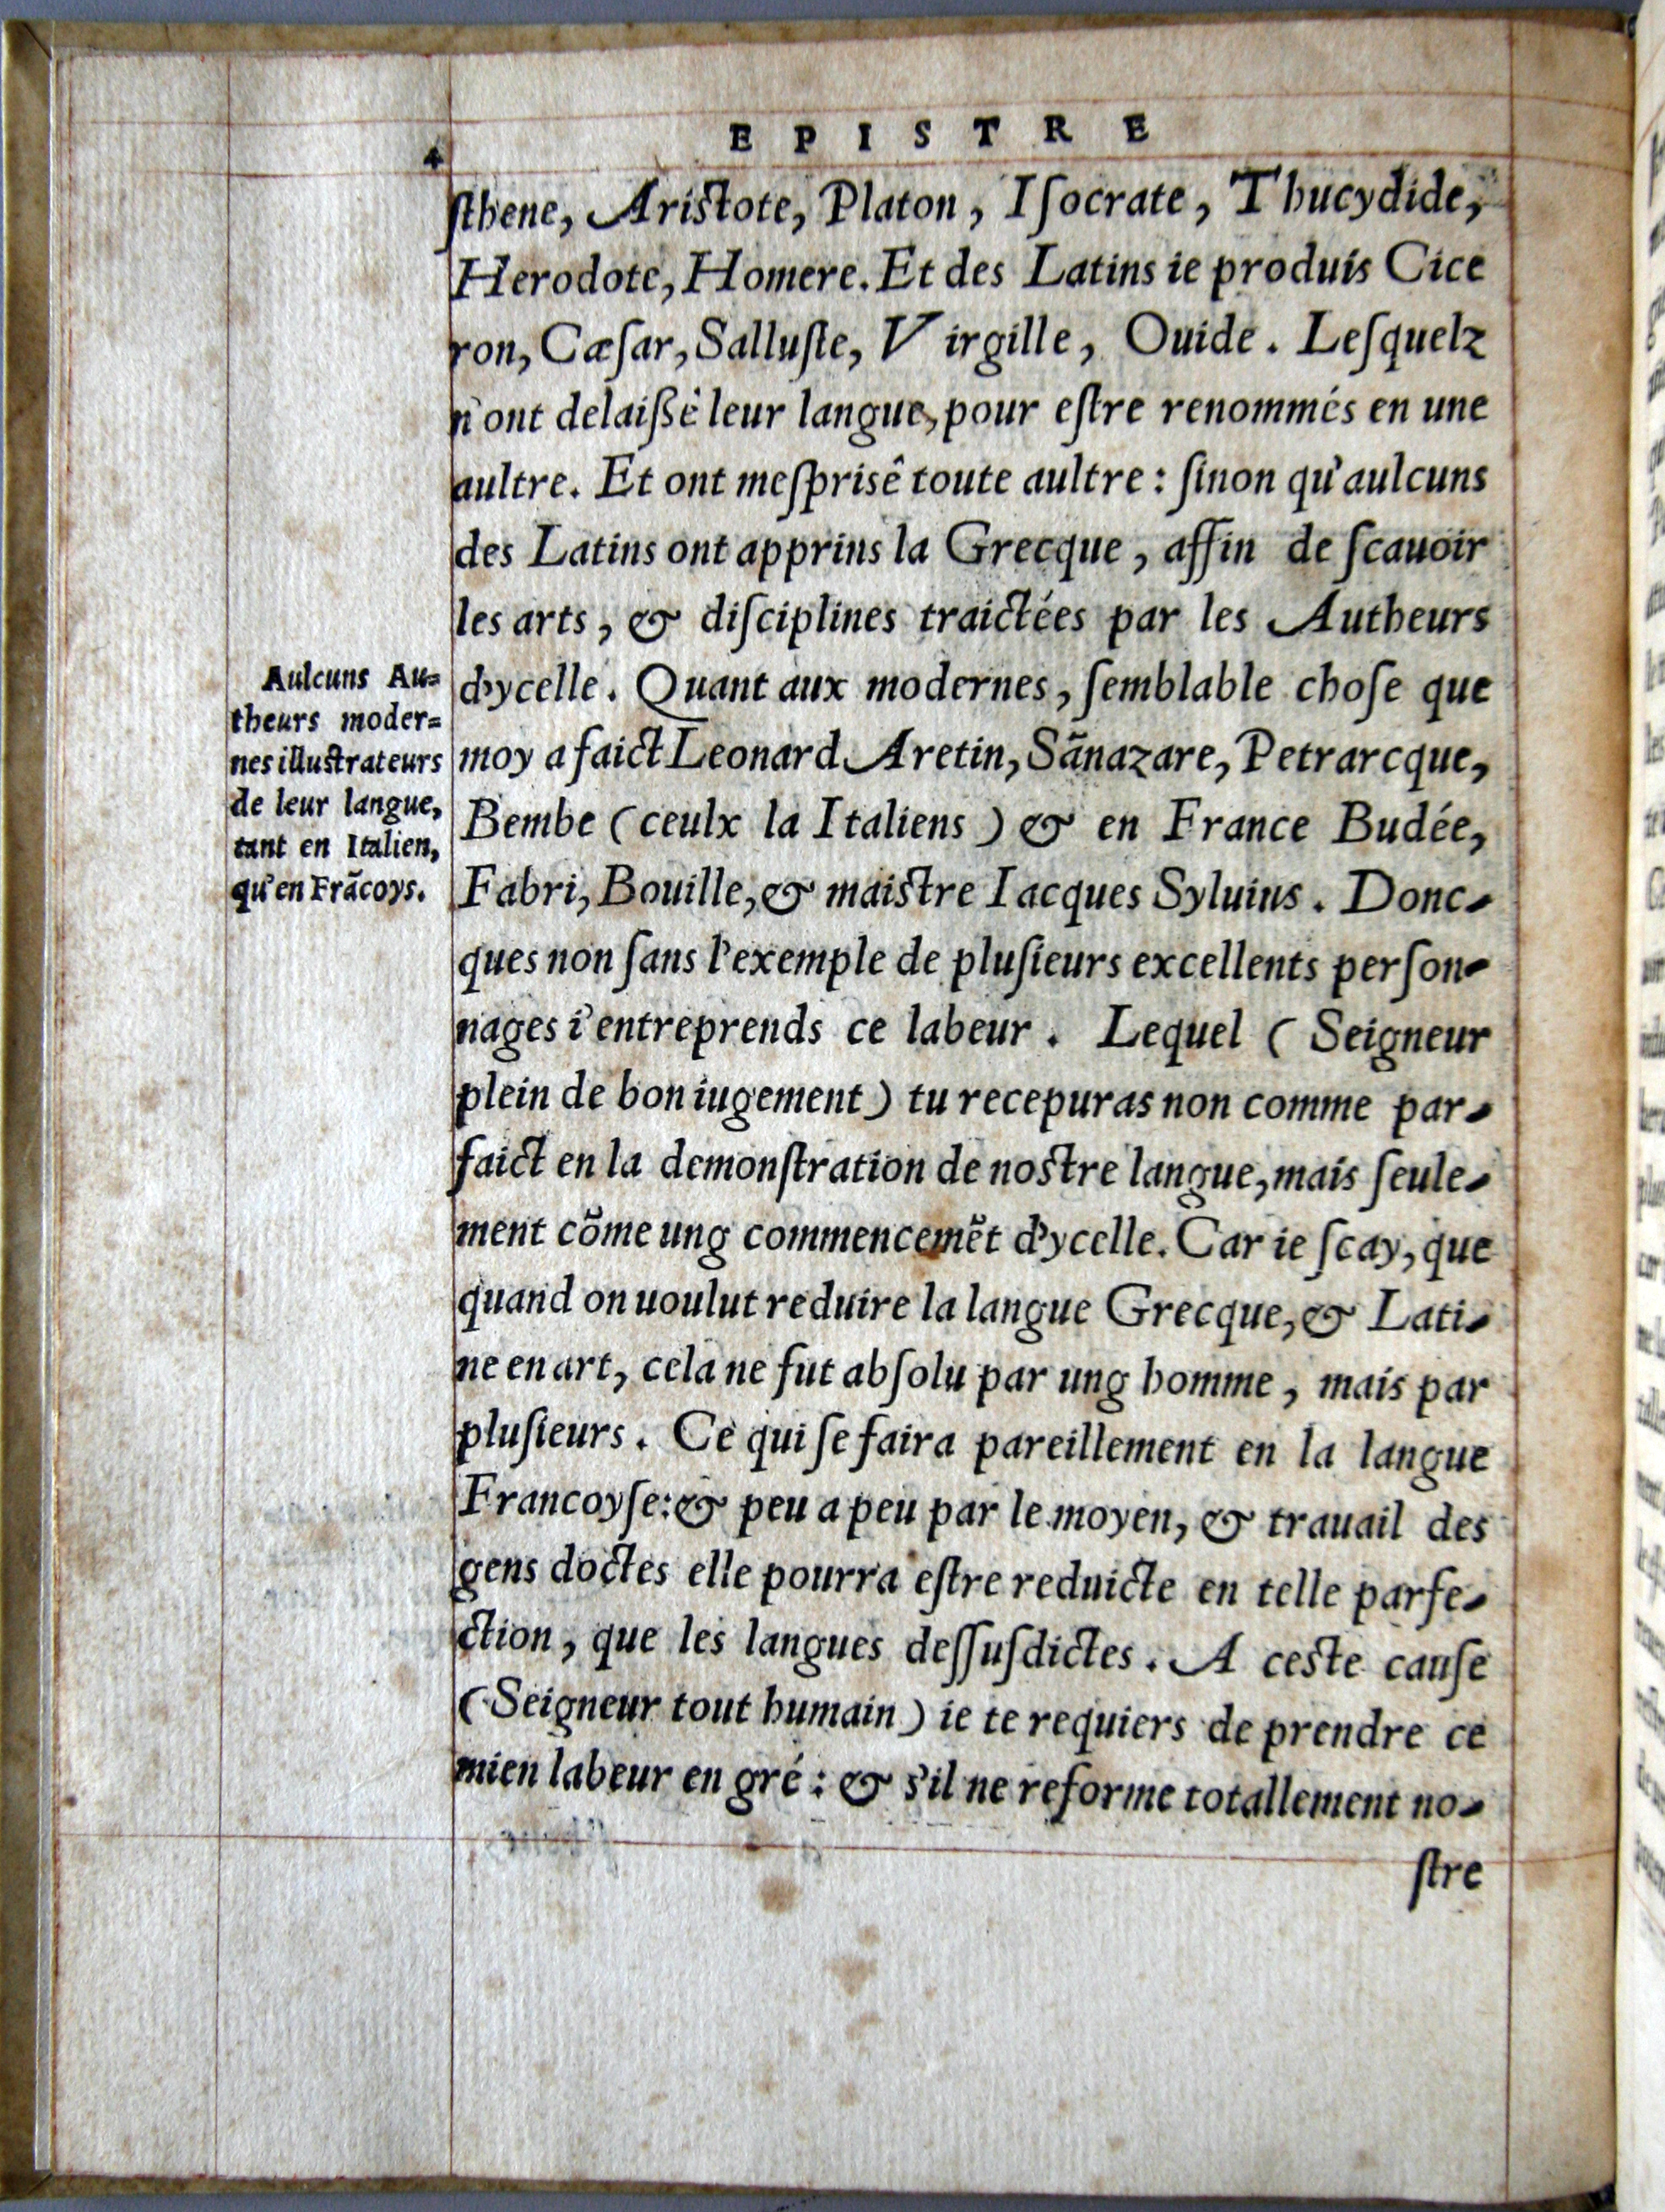 EPISTRE
4
ſthene, Ariſtote, Platon, Iſocrate, Thucydide,
Herodote, Homere. Et des Latins ie produis Cice
ron, Cæſar, Salluſte, Virgille, Ouide. Leſquelz
n'ont delaißé leur langue, pour eſtre renommés en une
aultre. Et ont meſprisê toute aultre: ſinon qu'aulcuns
des Latins ont apprins la Grecque, affin de ſcauoir
les arts, & diſciplines traictées par les Autheurs
d'ycelle. Quant aux modernes, ſemblable choſe que
moy a faict Leonard Aretin, Sãnazare, Petrarcque,
Bembe (ceulx la Italiens) & en France Budée,
Fabri, Bouille, & maiſtre Iacques Syluius. Donc-
ques non ſans l'exemple de pluſieurs excellents perſon-
nages i'entreprends ce labeur. Lequel (Seigneur
plein de bon iugement) tu recepuras non comme par-
faict en la demonſtration de noſtre langue, mais ſeule-
ment cõme ung commencemẽt d'ycelle. Car ie ſcay, que
quand on uoulut reduire la langue Grecque, & Lati-
ne en art, cela ne fut abſolu par ung homme, mais par
pluſieurs. Ce qui ſe faira pareillement en la langue
Francoyſe: & peu a peu par le moyen, & trauail des
gens doctes elle pourra eſtre reduicte en telle parfe-
ction, que les langues deſſuſdictes. A ceſte cauſe
(Seigneur tout humain) ie te requiers de prendre ce
mien labeur en gré: & s'il ne reforme totallement no-
ſtre
Aulcuns Au=
theurs moder=
nes illuſtrateurs
de leur langue,
tant en Italien,
qu'en Frãcoys.